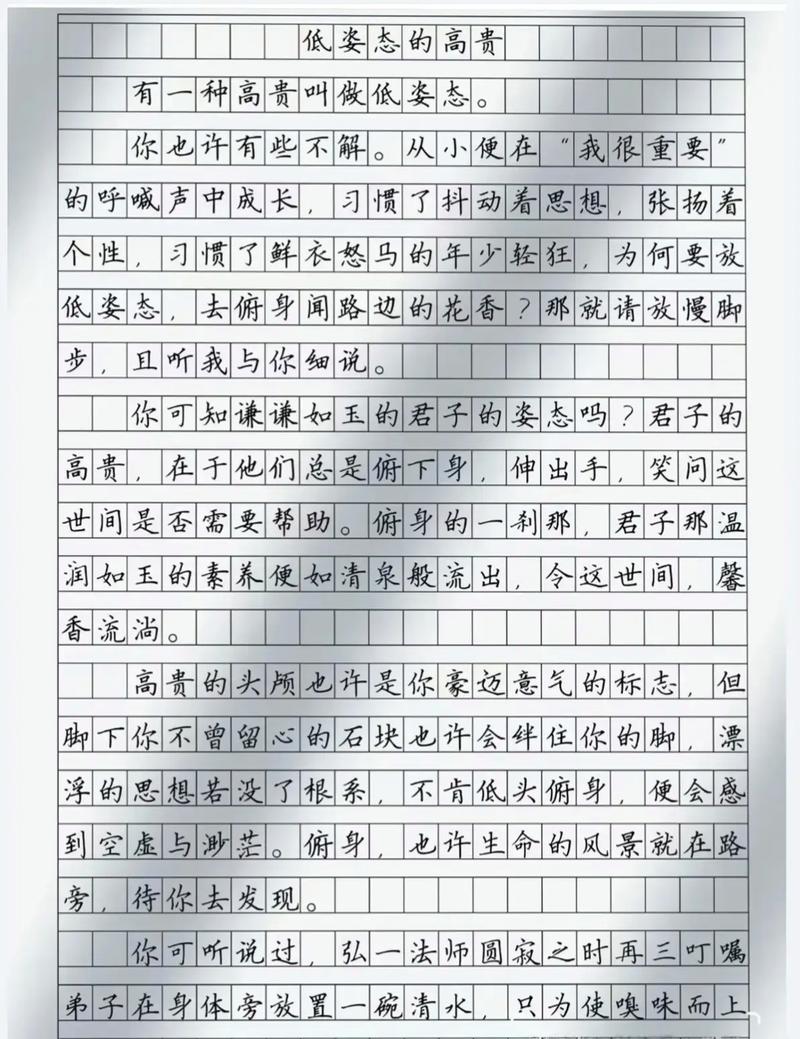 低姿态的高贵
有一种高贵叫做低姿态。
你也许有些不解。从小便在“我很重要”
的呼喊声中成长，习惯了抖动着思想，张扬着
个性，习惯了鲜衣怒马的年少轻狂，为何要放
低姿态，去俯身闻路边的花香？那就请放慢脚
步，且听我与你细说。
你可知谦谦如玉的君子的姿态吗？君子的
高贵，在于他们总是俯下身，伸出手，笑问这
世间是否需要帮助。俯身的一刹那，君子那温
润如玉的素养便如清泉般流出，令这世间，馨
香流淌。
高贵的头颅也许是你豪迈意气的标志，但
脚下你不曾留心的石块也许会绊住你的脚，漂
浮的思想若没了根系，不肯低头俯身，便会感
到空虚与渺茫。俯身，也许生命的风景就在路
旁，待你去发现。
你可听说过，弘一法师圆寂之时再三叮嘱
弟子在身体旁放置一碗清水，只为使嗅味而上